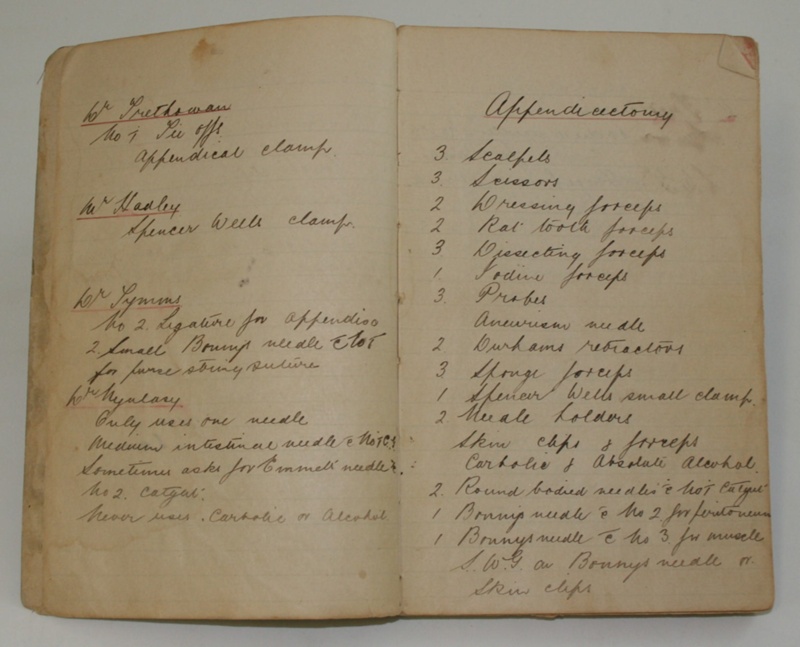 Dr Trethowan
No 1 Tie offs
Appendical clamp.
Mr Hadley
Spencer Wells clamp.
Dr Symms
No 2. Ligature for appendix
2. Small Bonnys needle c̄ No 1
for purse string suture
Dr
Only uses one needle
Medium intestinal needle c̄ No 1 C.G
Sometimes asks for Emmett needle &
No 2. Catgut.
Never uses. Carbolic or Alcohol
Appendicectomy
3. Scalpels
3. Scissors
2 Dressing forceps
2 Rat tooth forceps
3 Dissecting forceps
1 Iodine forceps
3. Probes
Aneurism needle
2 Durhams retractors
3 Sponge forceps
1 Spencer Wells small clamp.
2 Needle holders
Skin clips & forceps
Carbolic & Absolute Alcohol.
2. Round bodied needles c̄ No 1 Catgut
1 Bonnys needle c̄ No 2 for peritoneum
1 Bonnys needle c̄ No 3 for muscle
S.W.G. on Bonnys needle or
Skin clips